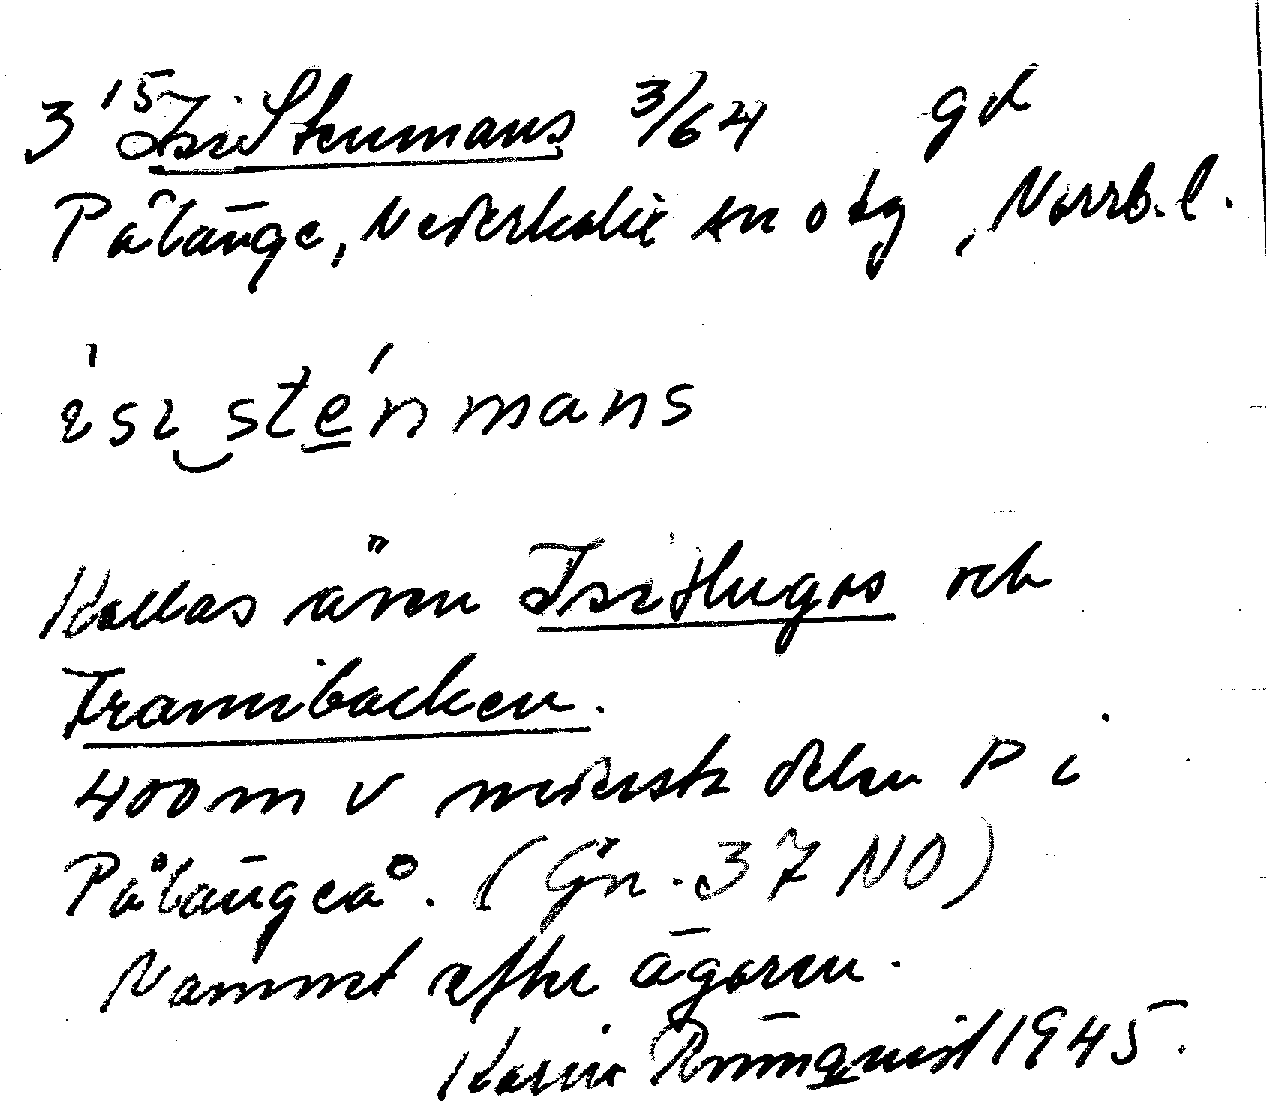 3 15 Isi Stenmans 3/64 gd
Pålänge, Nederkalix sn o tg, Norrb. l.
ısı stén mans
Kallas även Isi Hugos och
Trannibacken.
400 m v nedersta delen P i
Pålängeå. (Gn. 37 NO)
Namnet efter ägaren.
Karin Rönnquist 1945.